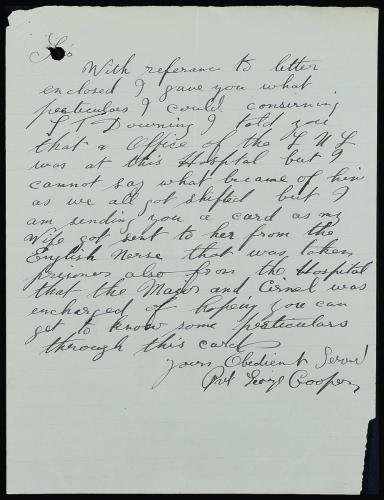 Sir
With referance to letter
enclosed I gave you what
perticulars I could conserning
L T Downing I told you
that a Office of the L N L
was at this Hospital but I
cannot say what became of him
as we all got shifted but I
am sending you a card as my
Wife got sent to her from the
English Nerse that was taken
prisoner also from the Hospital
that the Major and Cirnel was
encharged of hoping you can
get to know some perticulars
through this card
yours Obedient
Pvt Cooper